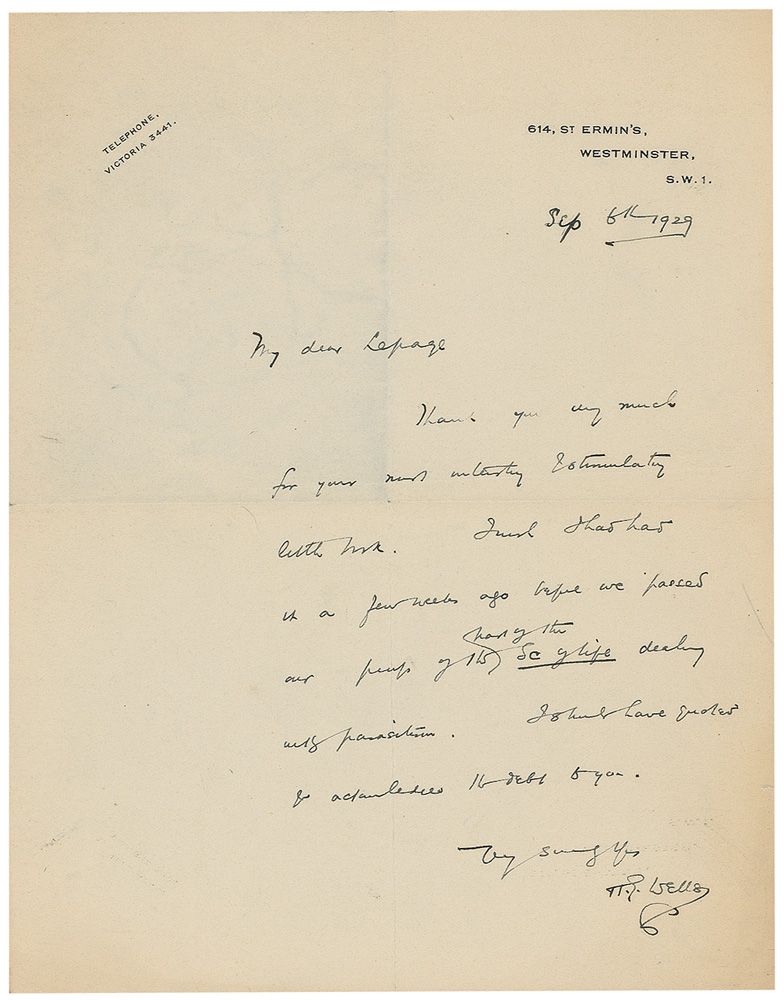 TELEPHONE,
VICTORIA 3441.
614, ST ERMIN'S,
WESTMINSTER,
S.W.1.
Sep 6th 1929
My dear Lepage
Thank you very much
for your most interesting & stimulating
little book. I wish I had had
it a few weeks ago before we passed
part of the
our proofs of the Sc of Life dealing
with parasitism. I should have quoted
& acknowledged the debt to you.
Very sincerely yrs
H.G. Wells